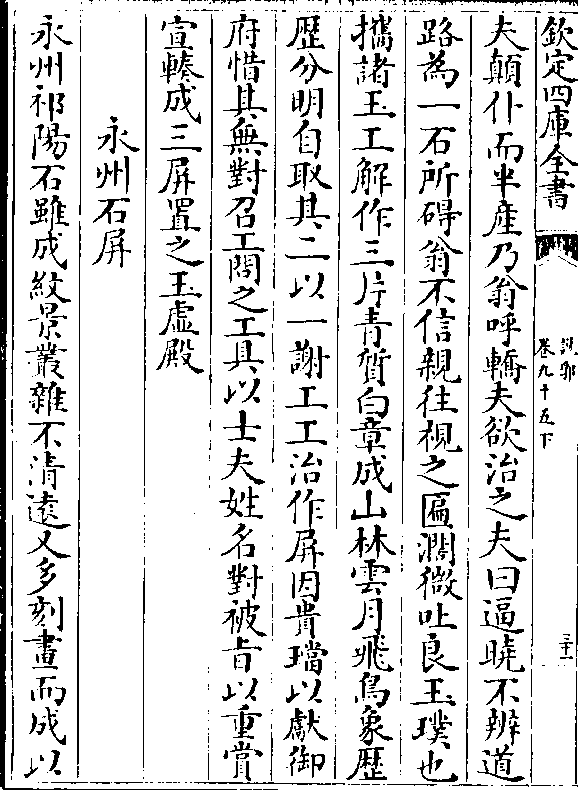 欽定四庫全書
說郛
卷九十五下
三十一
夫顛仆而半産乃翁呼轎夫欲治之夫曰逼曉不辨道
路為一石所碍翁不信親往視之匾濶微吐良玉璞也
攜諸玉工解作三片青質白章成山林雲月飛鳥象歴
歴分明自取其二以一謝工工治作屏因貴璫以獻御
府惜其無對召工問之工具以士夫姓名對被旨以重賞
宣轃成三屏置之玉虛殿
永州石屏
永州祁陽石雖成紋景叢雜不清遠又多刻畫而成以